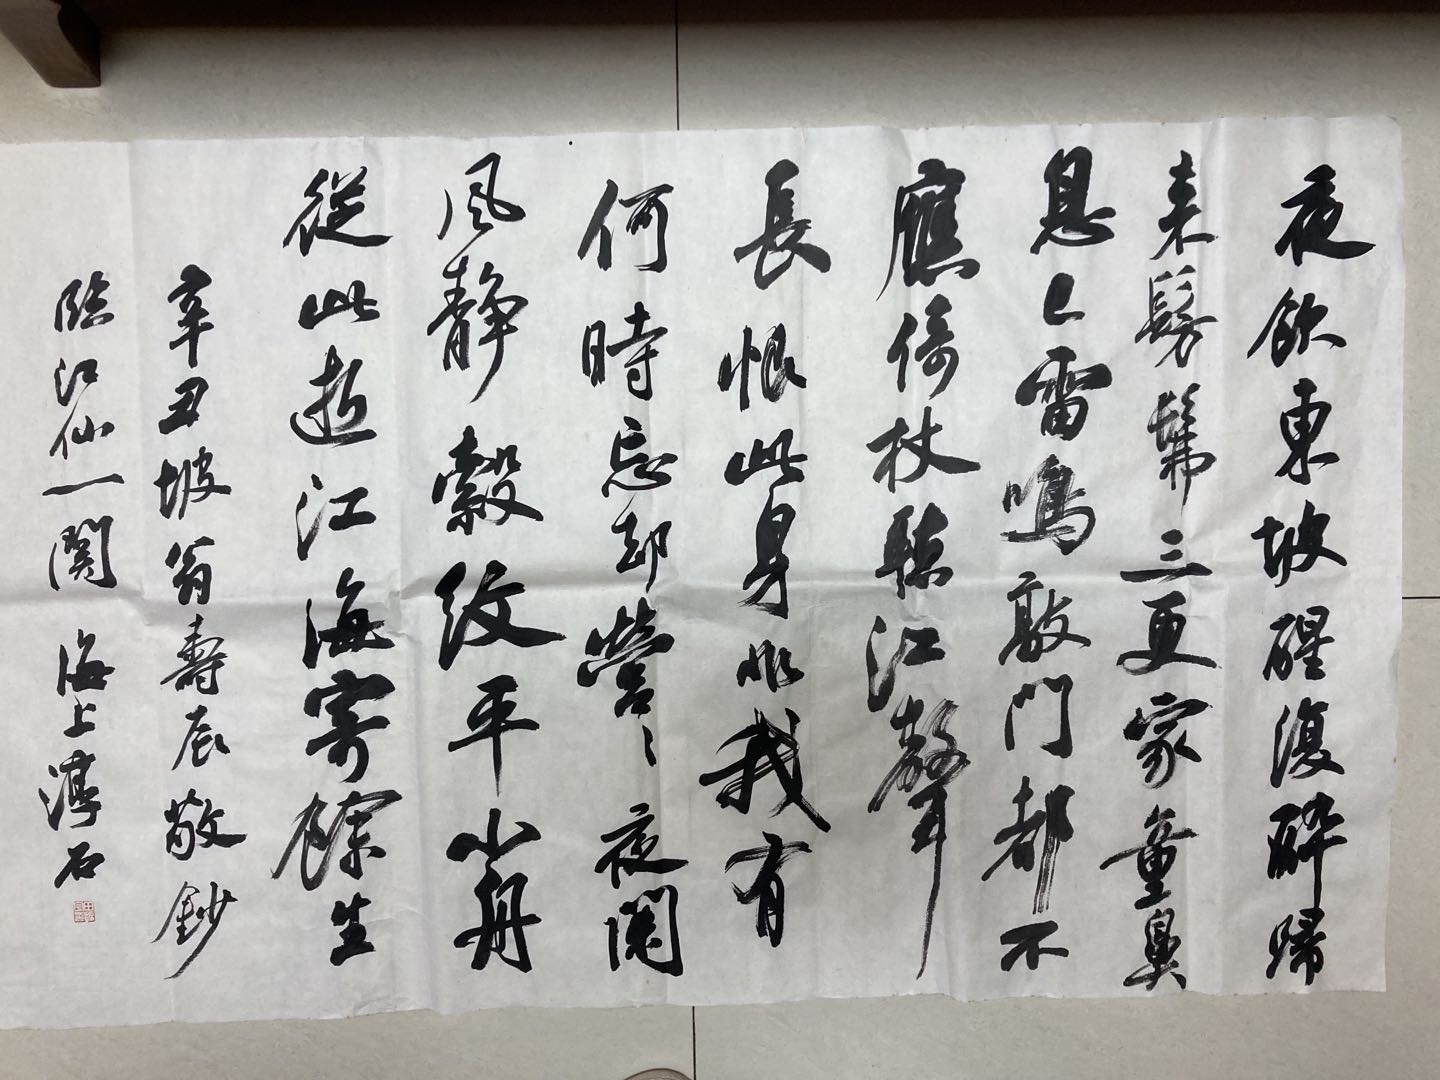 夜飲東坡醒復醉歸
来髣髴三更家童鼻
息已雷鳴敲門都不
應倚杖聽江聲
長恨此身非我有
何時忘却營〻夜闌
風静縠紋平小舟
從此逝江海寄餘生
辛丑坡翁壽辰敬鈔
臨江仙一闋海上淳石